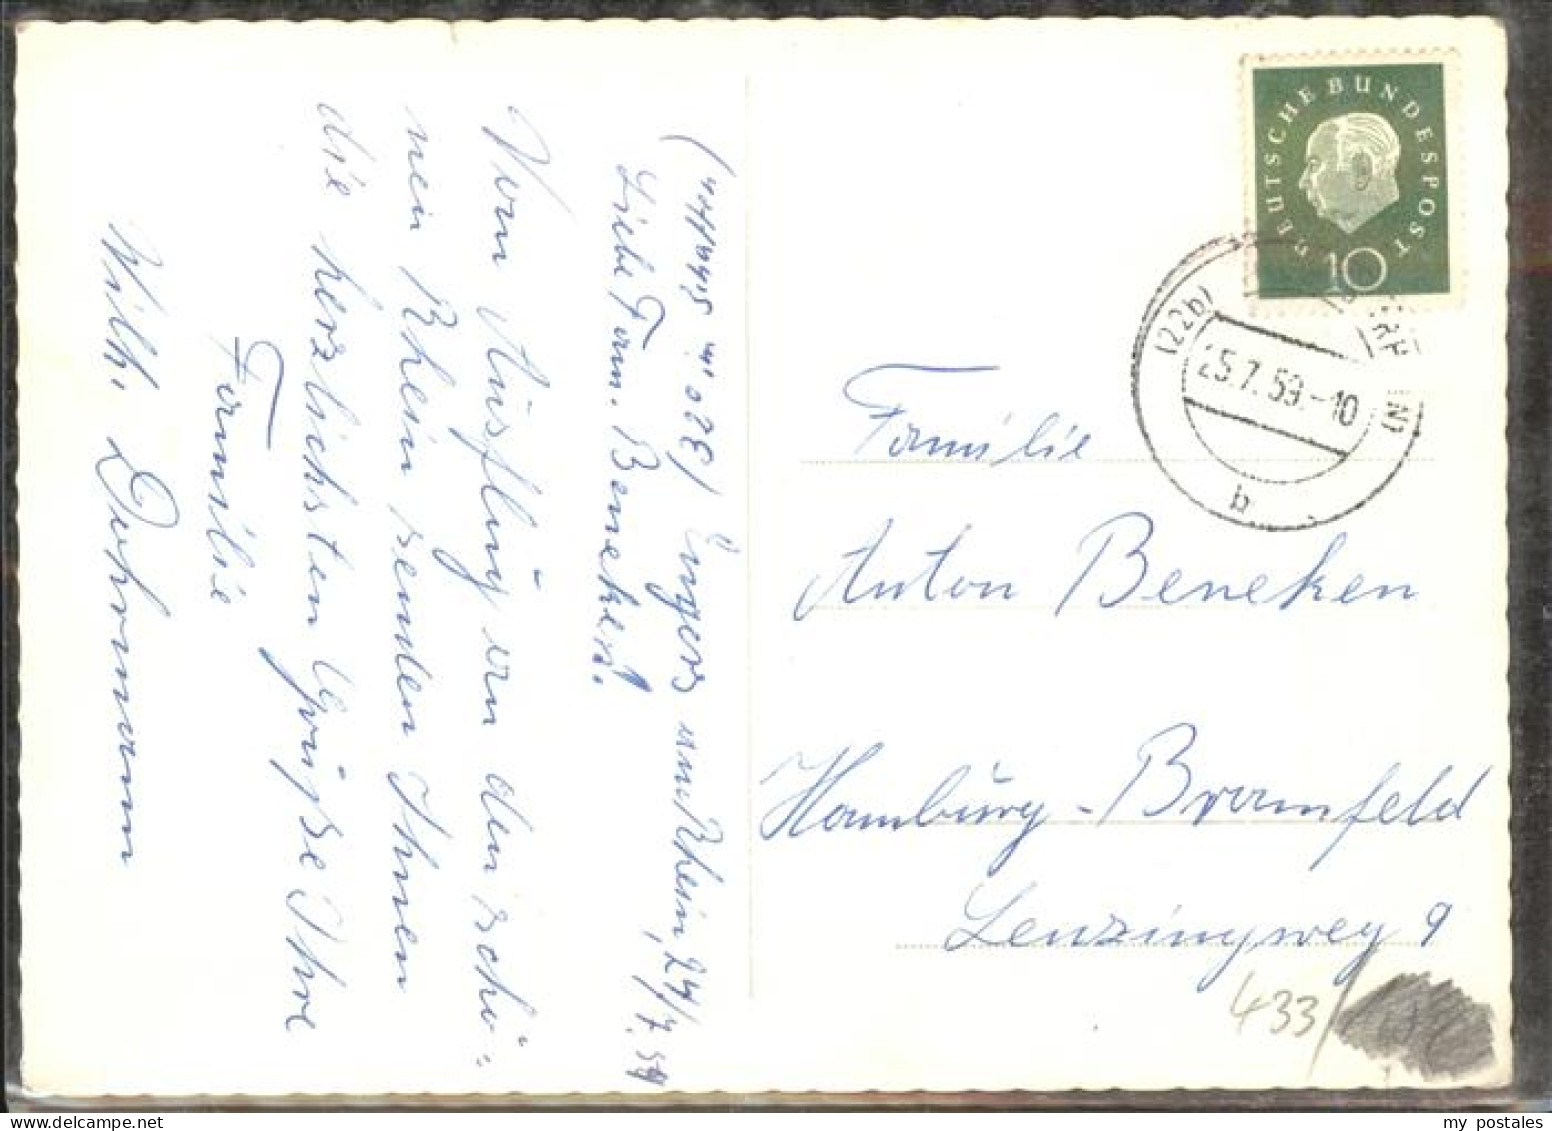 Engers am Rhein, 24/7.59
Liebe Fam. Beneken!
Vom Ausflug an den schö=
nen Rhein senden Ihnen
die herzlichsten Grüße Ihre
Familie
Wilh. Duhrmann
DEUTSCHE BUNDESPOST
10
(22b)
25.7.59.-10
b
Familie
Anton Beneken
Hamburg-Bramfeld
Lenzingweg 9
433/
my postales